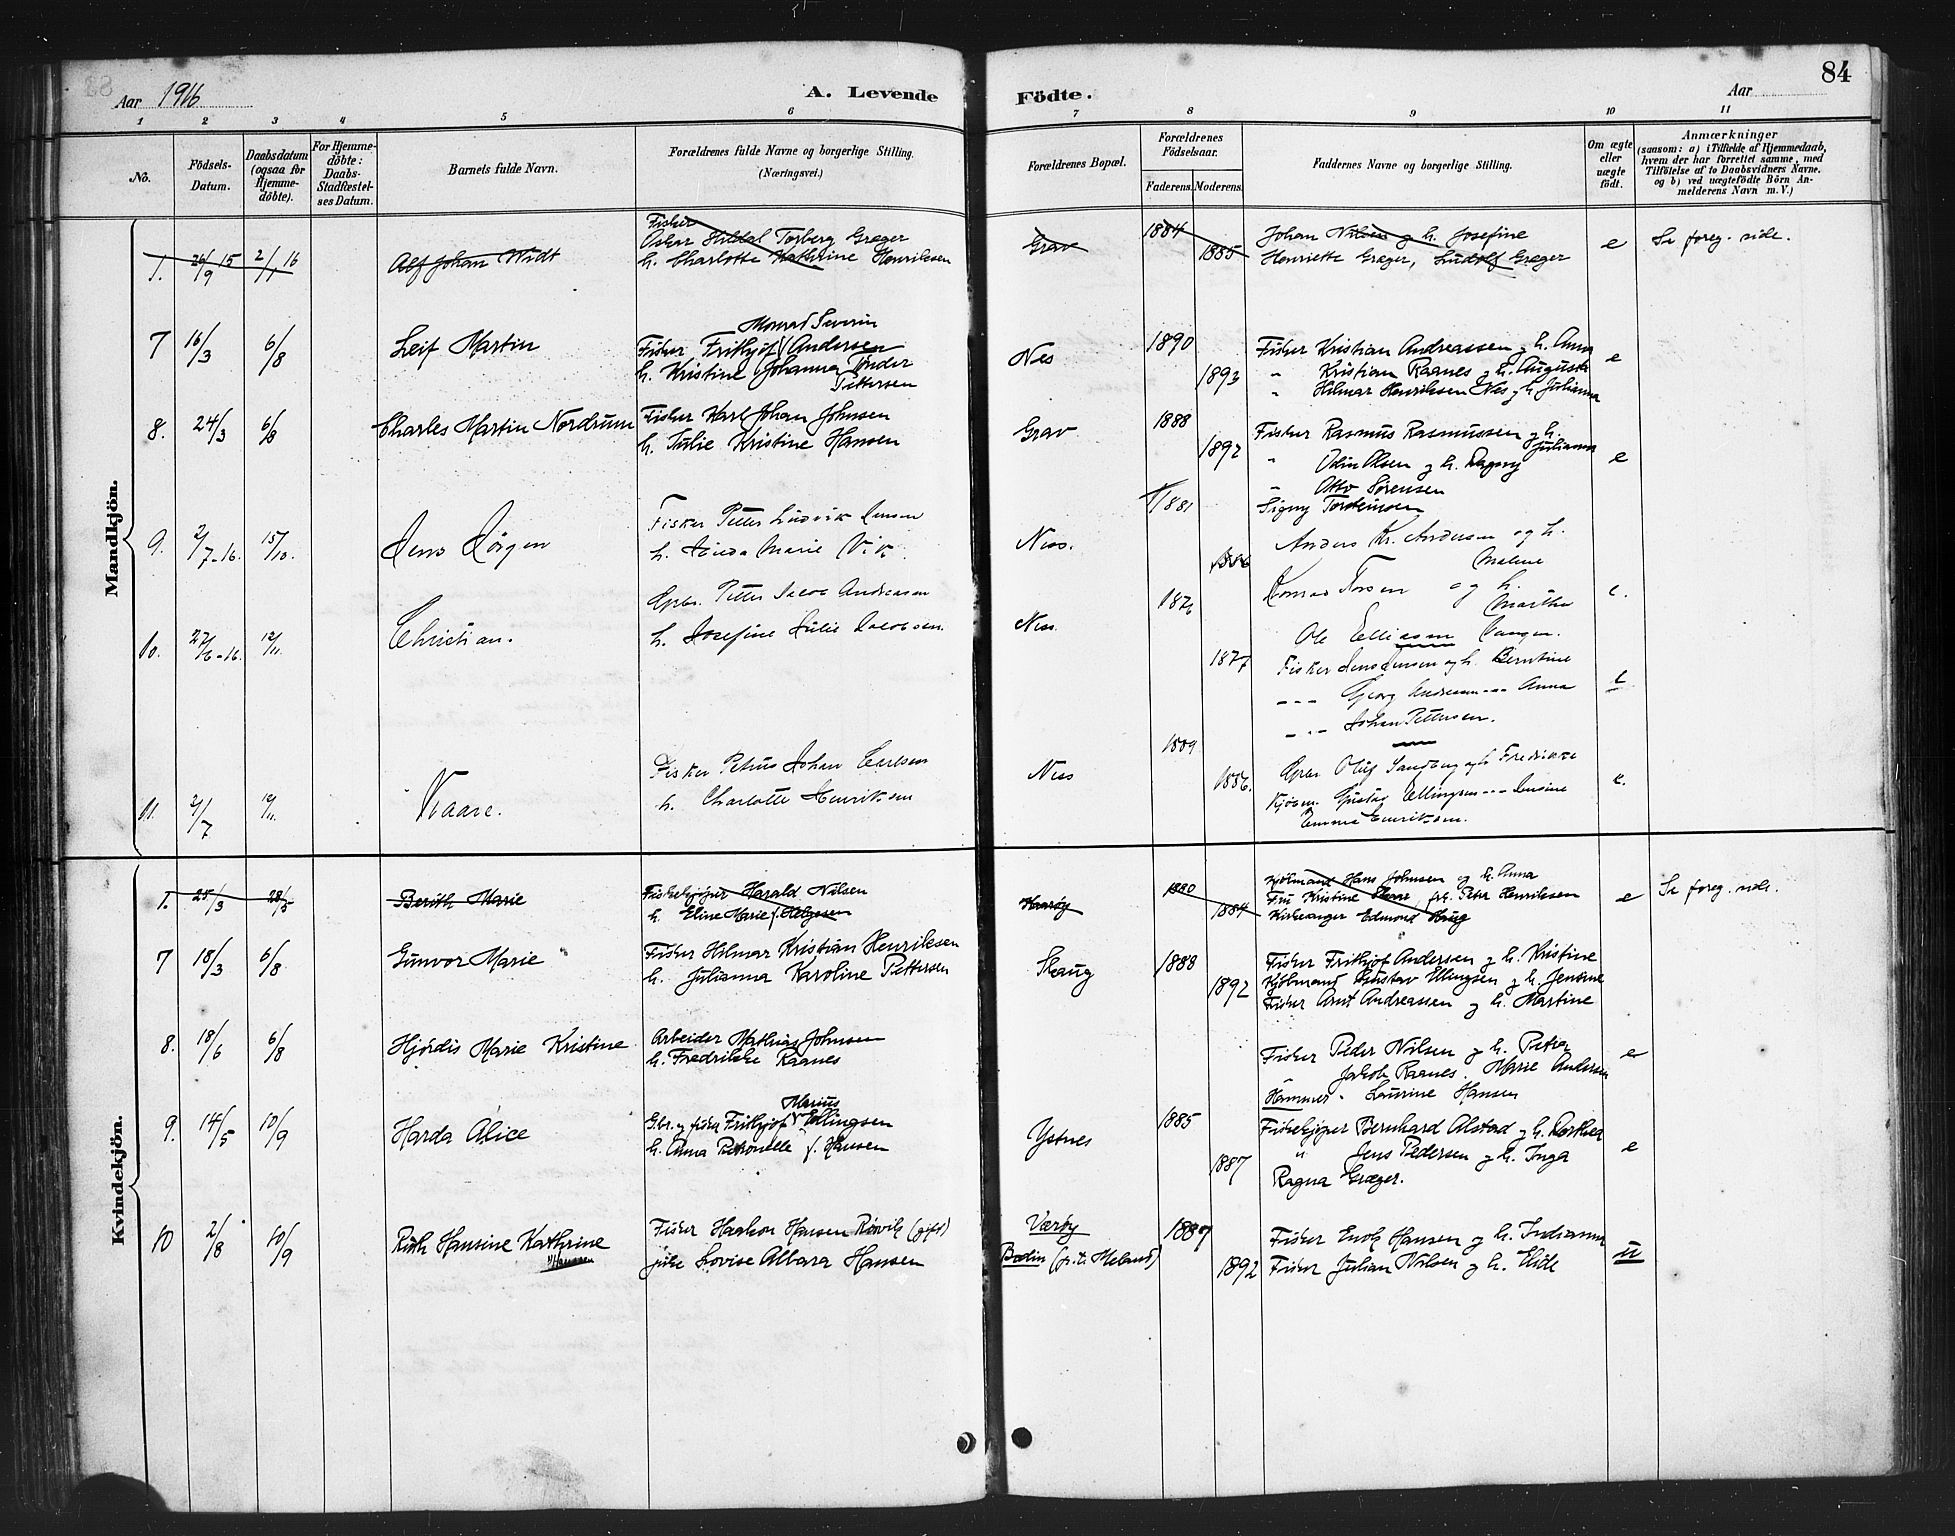 84
Aar 1916
A. Levende
Födte.
Aar
1 2 3 4 5 6 7 8 9 10 11
No.
Födsels-
Datum.
Daabsdatum
(ogsaa for
Hjemme-
döbte).
For Hjemme-
döbte:
Daabs-
Stadfæstel-
ses Datum.
Barnets fulde Navn.
Forældrenes fulde Navne og borgerlige Stilling.
(Næringsvei.)
Forældrenes Bopæl.
Forældrenes
Födselsaar.
Faderens. Moderens.
Faddernes Navne og borgerlige Stilling.
Om ægte
eller
uægte
födt.
Anmærkninger
(saasom: a) i Tilfælde af Hjemmedaab,
hvem der har forrettet samme, med
Tilföielse af to Daabsvidners Navne.
og b) ved uægtefödte Börn An-
melderens Navn m. V.)
Mandkjön.
1. 26/9 15 2/1 16 Alf Johan Widt
Fisker
Oskar Hildal Torberg Græger
h. Charlotte Kathrine Henriksen
Grav
1884
1885
Johan Nilsen og h. Josefine
Henriette Græger, Ludolf Græger
e
Se foreg. side.
7 16/3 6/8 Leif Martin
Monrad Severin
Fisker Frithjof Andersen
h. Kristine Johanna Tönder
Pettersen
Nes
1890
1893
Fisker Kristian Andreassen og h. Anna
" Kristian Raanes og h. Augusta
" Hilmar Henriksen Nes og h. Julianna
e
8. 24/3 6/8 Charles Martin Nordrum
Fisker Karl Johan Johnsen
h. Julie Kristine Hansen
Grav
1888
1892
Fisker Rasmus Rasmussen og h.
Julianna
" Odin Olsen og h. Dagny
" Otto Sörensen
Signy Torsteinsen
e
9. 2/7-16. 15/10. Jens Jörgen
Fisker Petter Ludvik Jensen
h. Marie Vik
Ness.
1881
1886
Anders Kr. Andersen og h.
Malene
Konrad og h.
Martha
Ole
e.
10. 27/6-16. 12/11. Christian.
Gbr. Petter Jacob Andreasen
h. Josefine Julie Jacobsen.
Ness
1876
1877
Fisker Jens Jensen og h. Berntine
--- Georg Andreasen --- Anna
--- Johan Pettersen.
e
11. 2/7 12/11. Kaare.
Fisker Petrus Johan Carlsen
h. Charlotte Henriksen
Ness
1889
1886.
Gbr. Oluf Sandberg og h Fredrikke
Kjöbm. Gustav Ellingsen --- Jensine
Emma Henriksen.
e.
Kvindekjön.
1. 25/3 28/5 Berith Marie
Fiskekjöper Harald Nilsen
h. Eline Marie f. Helgesen
1880
1884
Kjöbmand Hans Johnsen og h. Anna
Fru Kristine frk. Petra Henriksen
Kirkesanger Edmond Haug
e
Se foreg. side.
7 18/3 6/8 Gunvor Marie
Fisker Hilmar Kristian Henriksen
h. Julianna Karoline Pettersen
Skaug
1888
1892
Fisker Frithjof Andersen og h. Kristine
Kjöbmand Gustav Ellingsen og h. Jensine
Fisker Arnt Andreassen og h. Martine
8. 18/6 6/8 Hjördis Marie Kristine
Arbeider Mathias Johnsen
h. Fredrikke Raanes
Fisker Peder Nilsen og h. Petra
" Jakob Raanes. Marie Andersen
Hammer - Laurine Hansen
e
9. 14/5 10/9 Harda Alice
Marius
Gbr. og fisker Frithjof Ellingsen
h. Anna Petronelle f. Hansen
Ystnes
1885
1887
Fiskekjöper Bernhard Alstad og h. Dorthea
" Jens Pedersen og h. Inga
Ragna Græger.
e
10 2/8 10/9 Ruth Hansine Kathrine
Hansen
Fisker Haakon Hansen Rövik (gift)
pike Lovise Albara Hansen
Værøy
Bodin (p.t. Meland)
1887
1892
Fisker Enok Hansen og h. Indianna
Fisker Julian Nilsen og h. Elide
u